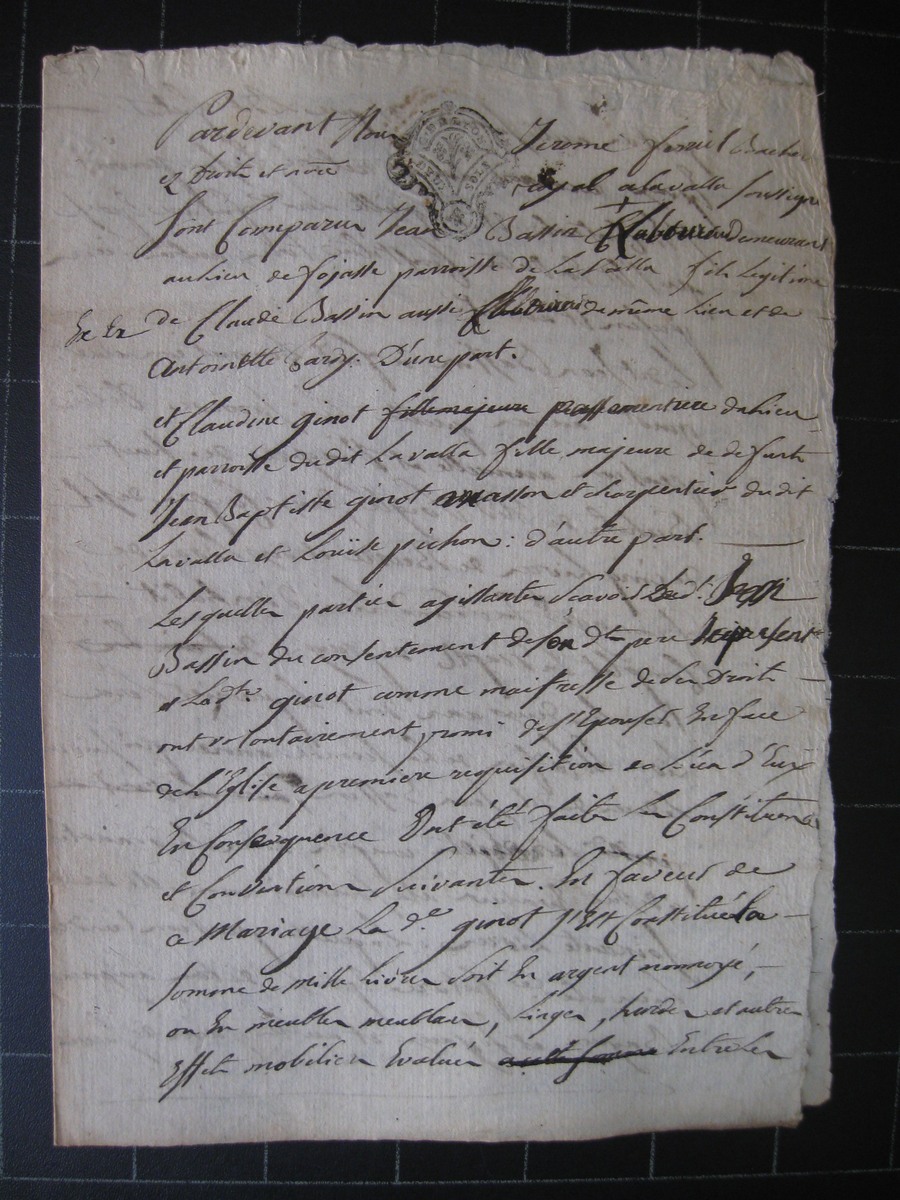 Pardevant Nous Jerome ferriol Bachelier
Ez Droits et nore royal a Lavalla soussigné
sont Comparu Jean Bassin Laboureur demeurant
au lieu de fojasse parroisse de Lavalla fils Legitime
de Claude Bassin aussi Laboureur de même lieu et de
Antoinette Cardy. D'une part.
et Claudine ginot fille majeure passementiere du lieu
et parroisse du dit Lavalla fille majeure de defunt
Jean Baptiste ginot masson et charpentier du dit
Lavalla et Louïse pichon: d'autre part.
Lesquelles parties agissantes scavoir Led.t
Bassin du consentement de son dt. pere
et Lad.te ginot comme maitresse de ses Droits
ont volontairement promi de s'Epouser En face
de l'Eglise a premiere requisition de L'un d'Eux
En Consequence Ont été faites les Constitutions
et Conventions suivantes. En faveur de
ce Mariage La d.e ginot s'Est Constituée la
somme de mille Livres soit En argent monnoyé,
ou En meubles meublans, Linges, hardes et autres
Effets mobiliers Evalués Entre les